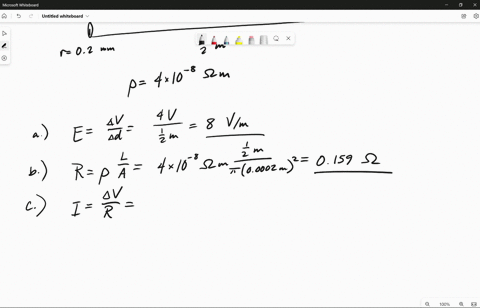 Microsoft Whiteboard
Untitled whiteboard
r = 0.2 mm
2 m
ρ = 4×10⁻⁸ Ωm
a.) E = ΔV/Δd = 4V/(1/2 m) = 8 V/m
b.) R = ρ L/A = 4×10⁻⁸ Ωm (1/2 m)/(π(0.0002m)²) = 0.159 Ω
c.) I = ΔV/R =
100%